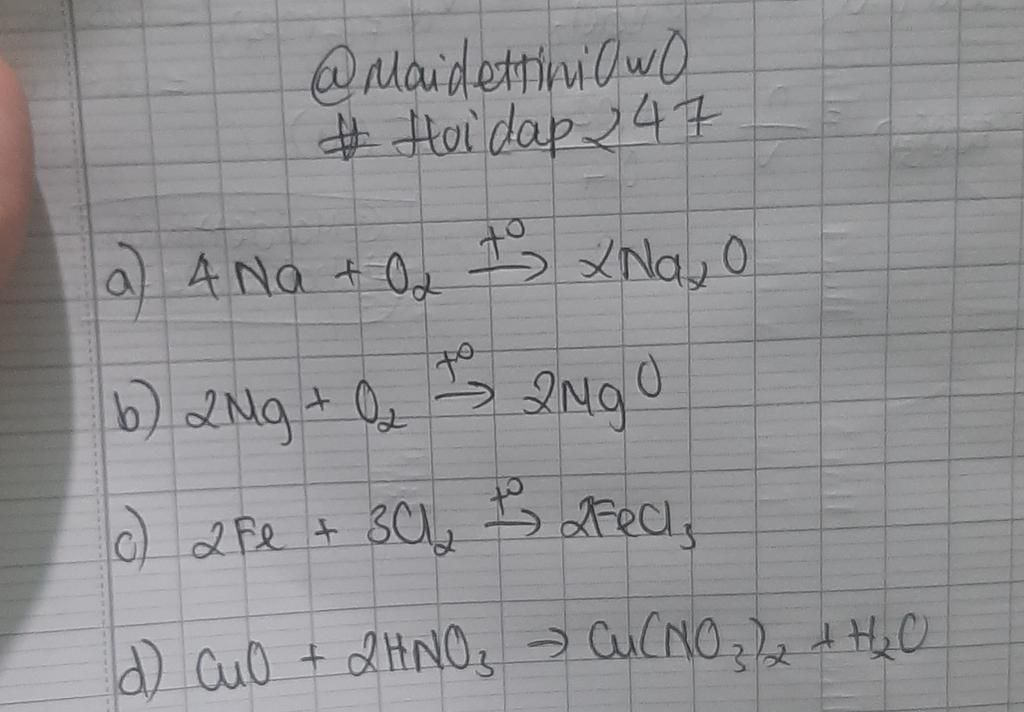 @Maidettini0w0
# Hoidap247
a) 4Na + O₂ →(t⁰) 2Na₂O
b) 2Mg + O₂ →(t⁰) 2MgO
c) 2Fe + 3Cl₂ →(t⁰) 2FeCl₃
d) CuO + 2HNO₃ → Cu(NO₃)₂ + H₂O